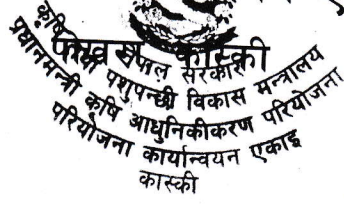 नेपाल सरकार
कृषि तथा पशुपन्छी विकास मन्त्रालय
प्रधानमन्त्री कृषि आधुनिकीकरण परियोजना
परियोजना कार्यान्वयन एकाइ
कास्की
कास्की